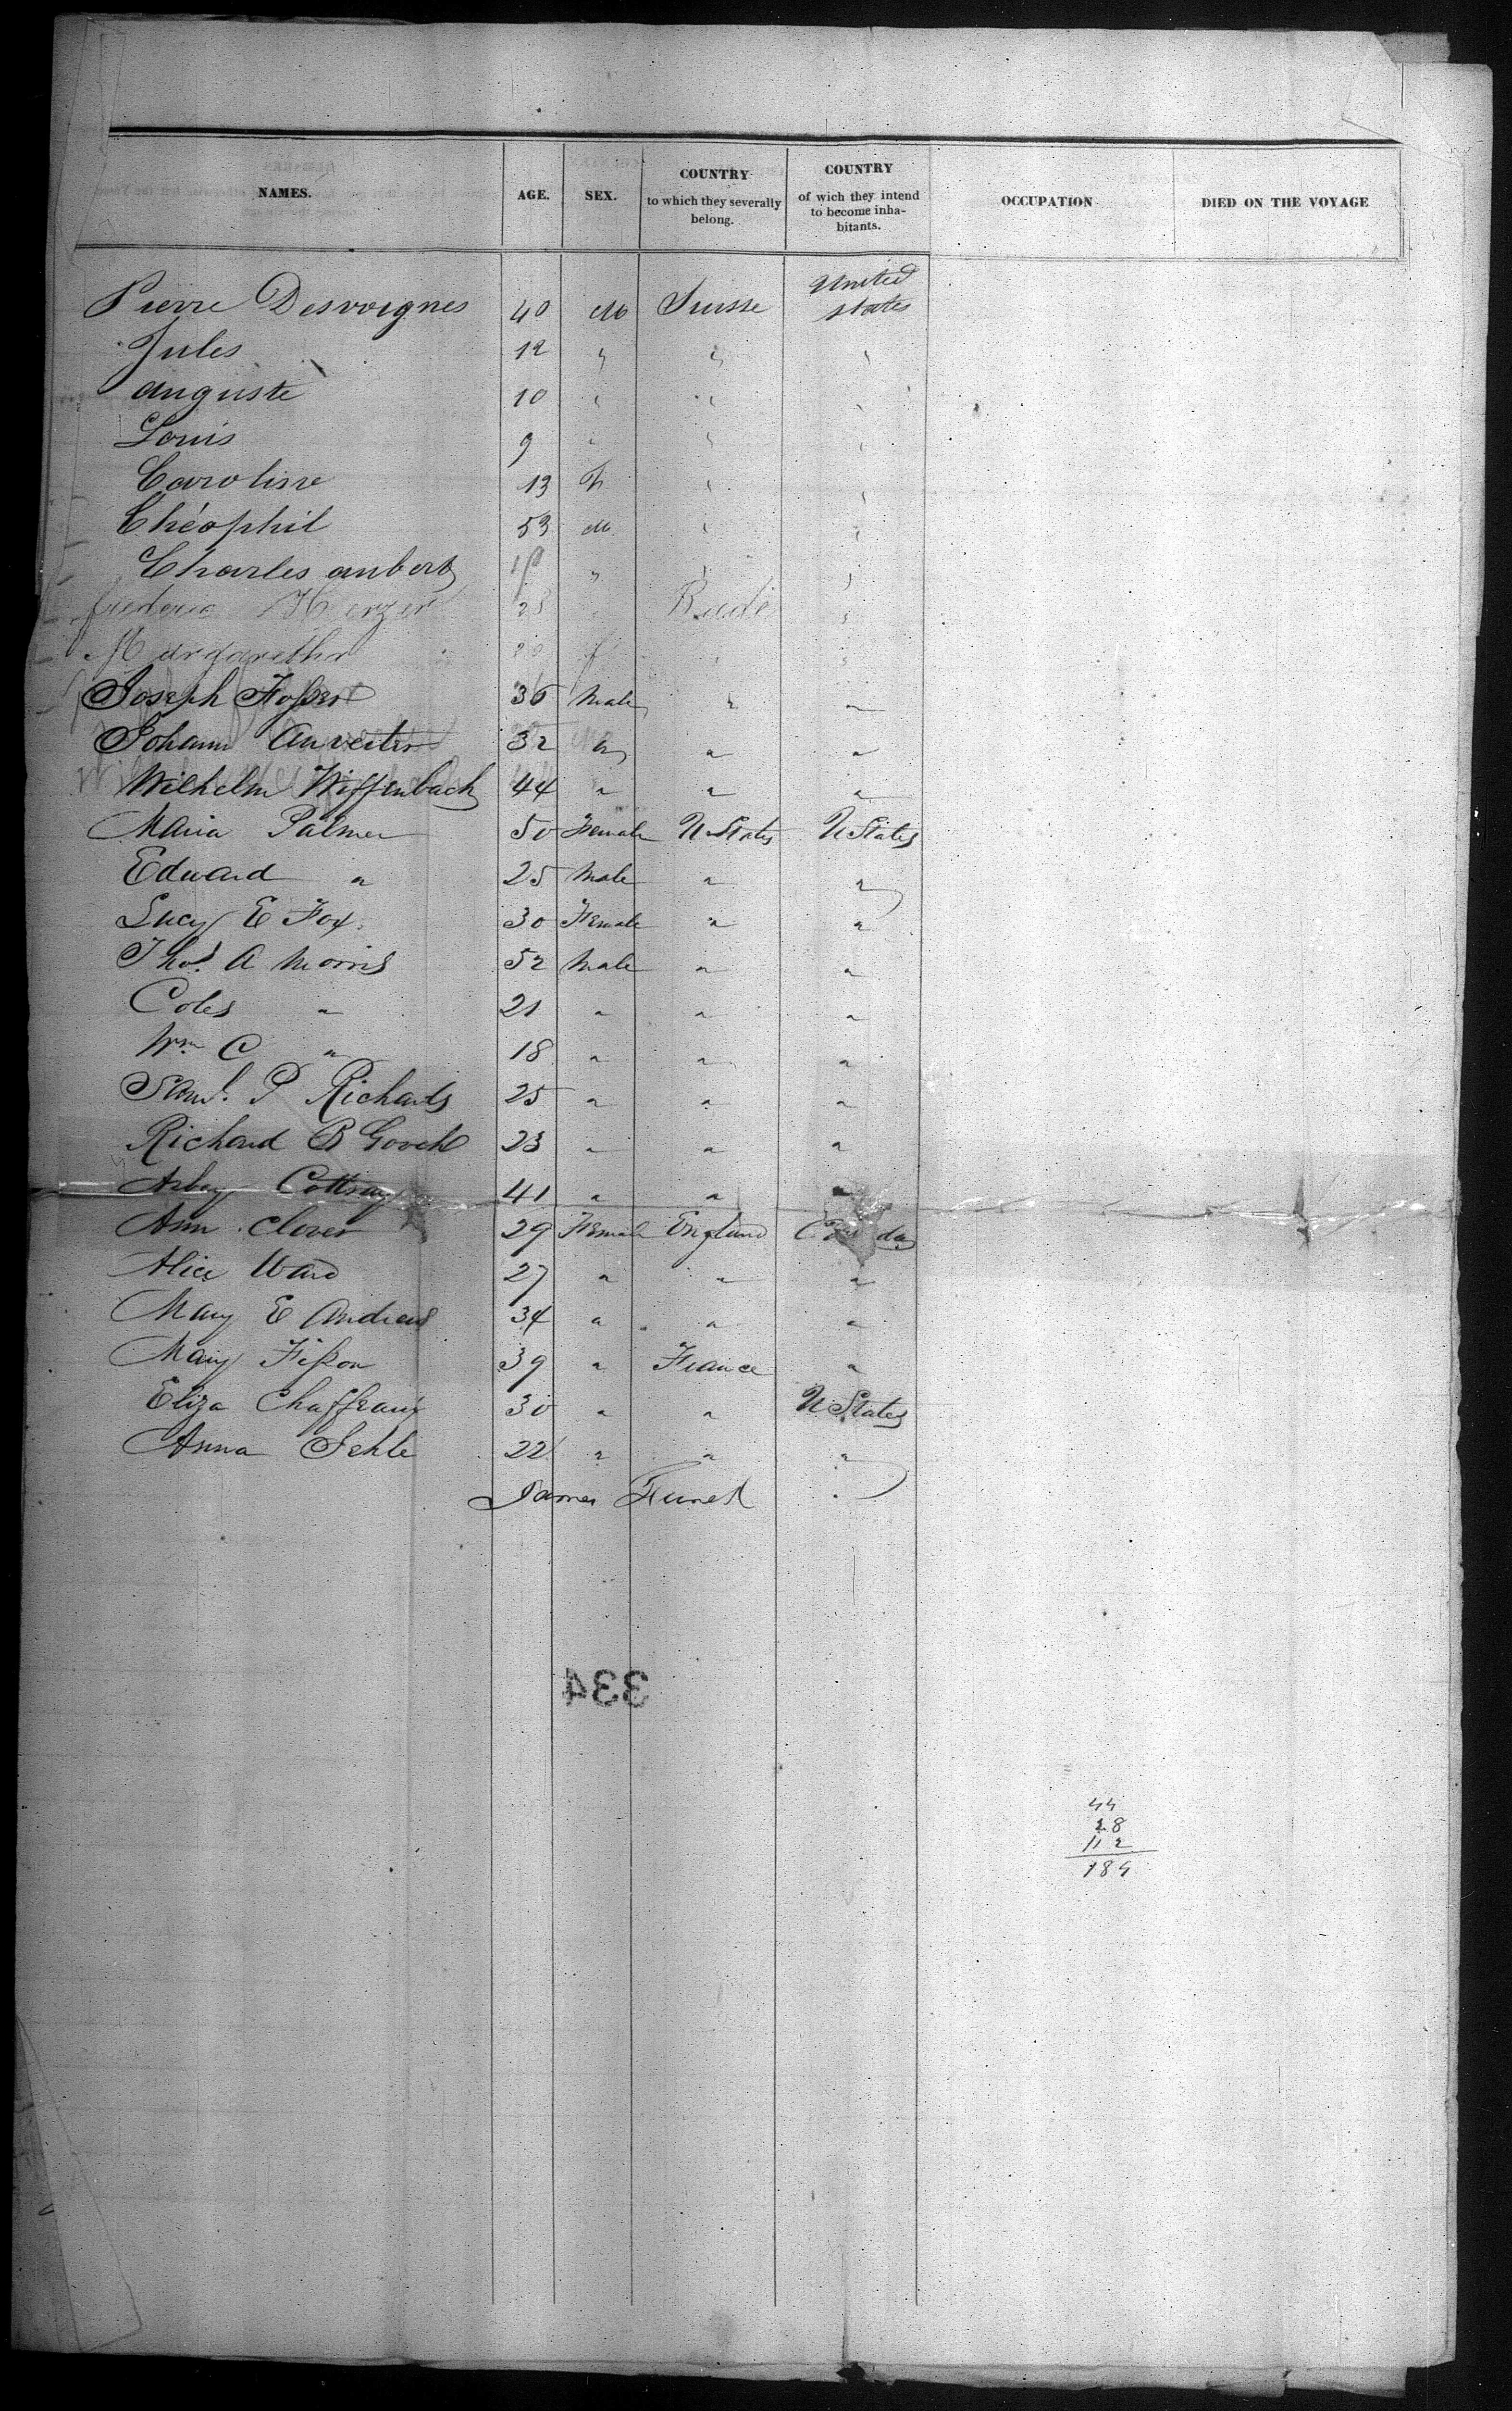 NAMES. AGE. SEX. COUNTRY to which they severally belong. COUNTRY of wich they intend to become inhabitants. OCCUPATION DIED ON THE VOYAGE
Pierre Desvoignes 40 M Suisse United States
Jules 12 " " "
auguste 10 " " "
Louis 9 " " "
Caroline 13 F " "
Théophil 53 M " "
Charles aubert " " "
frederic 28 " "
Margaretha f " "
Joseph 36 Male " "
Johann 32 " " "
Wilhelm Wiffenbach 44 " " "
Maria Palmer 50 Female U States U States
Edward " 25 Male " "
Lucy E Fox 30 Female " "
Thos. A Morris 52 Male " "
Coles " 21 " " "
Wm C " 18 " " "
Saml. P Richards 25 " " "
Richard B Gooch 23 " " "
41 " " "
Ann Clover 29 Female England
Alice Ward 27 " " "
Mary E Andrews 34 " " "
Mary 39 " France "
Eliza 30 " " U States
Anna 22 " " "
James
334
44
28
112
184